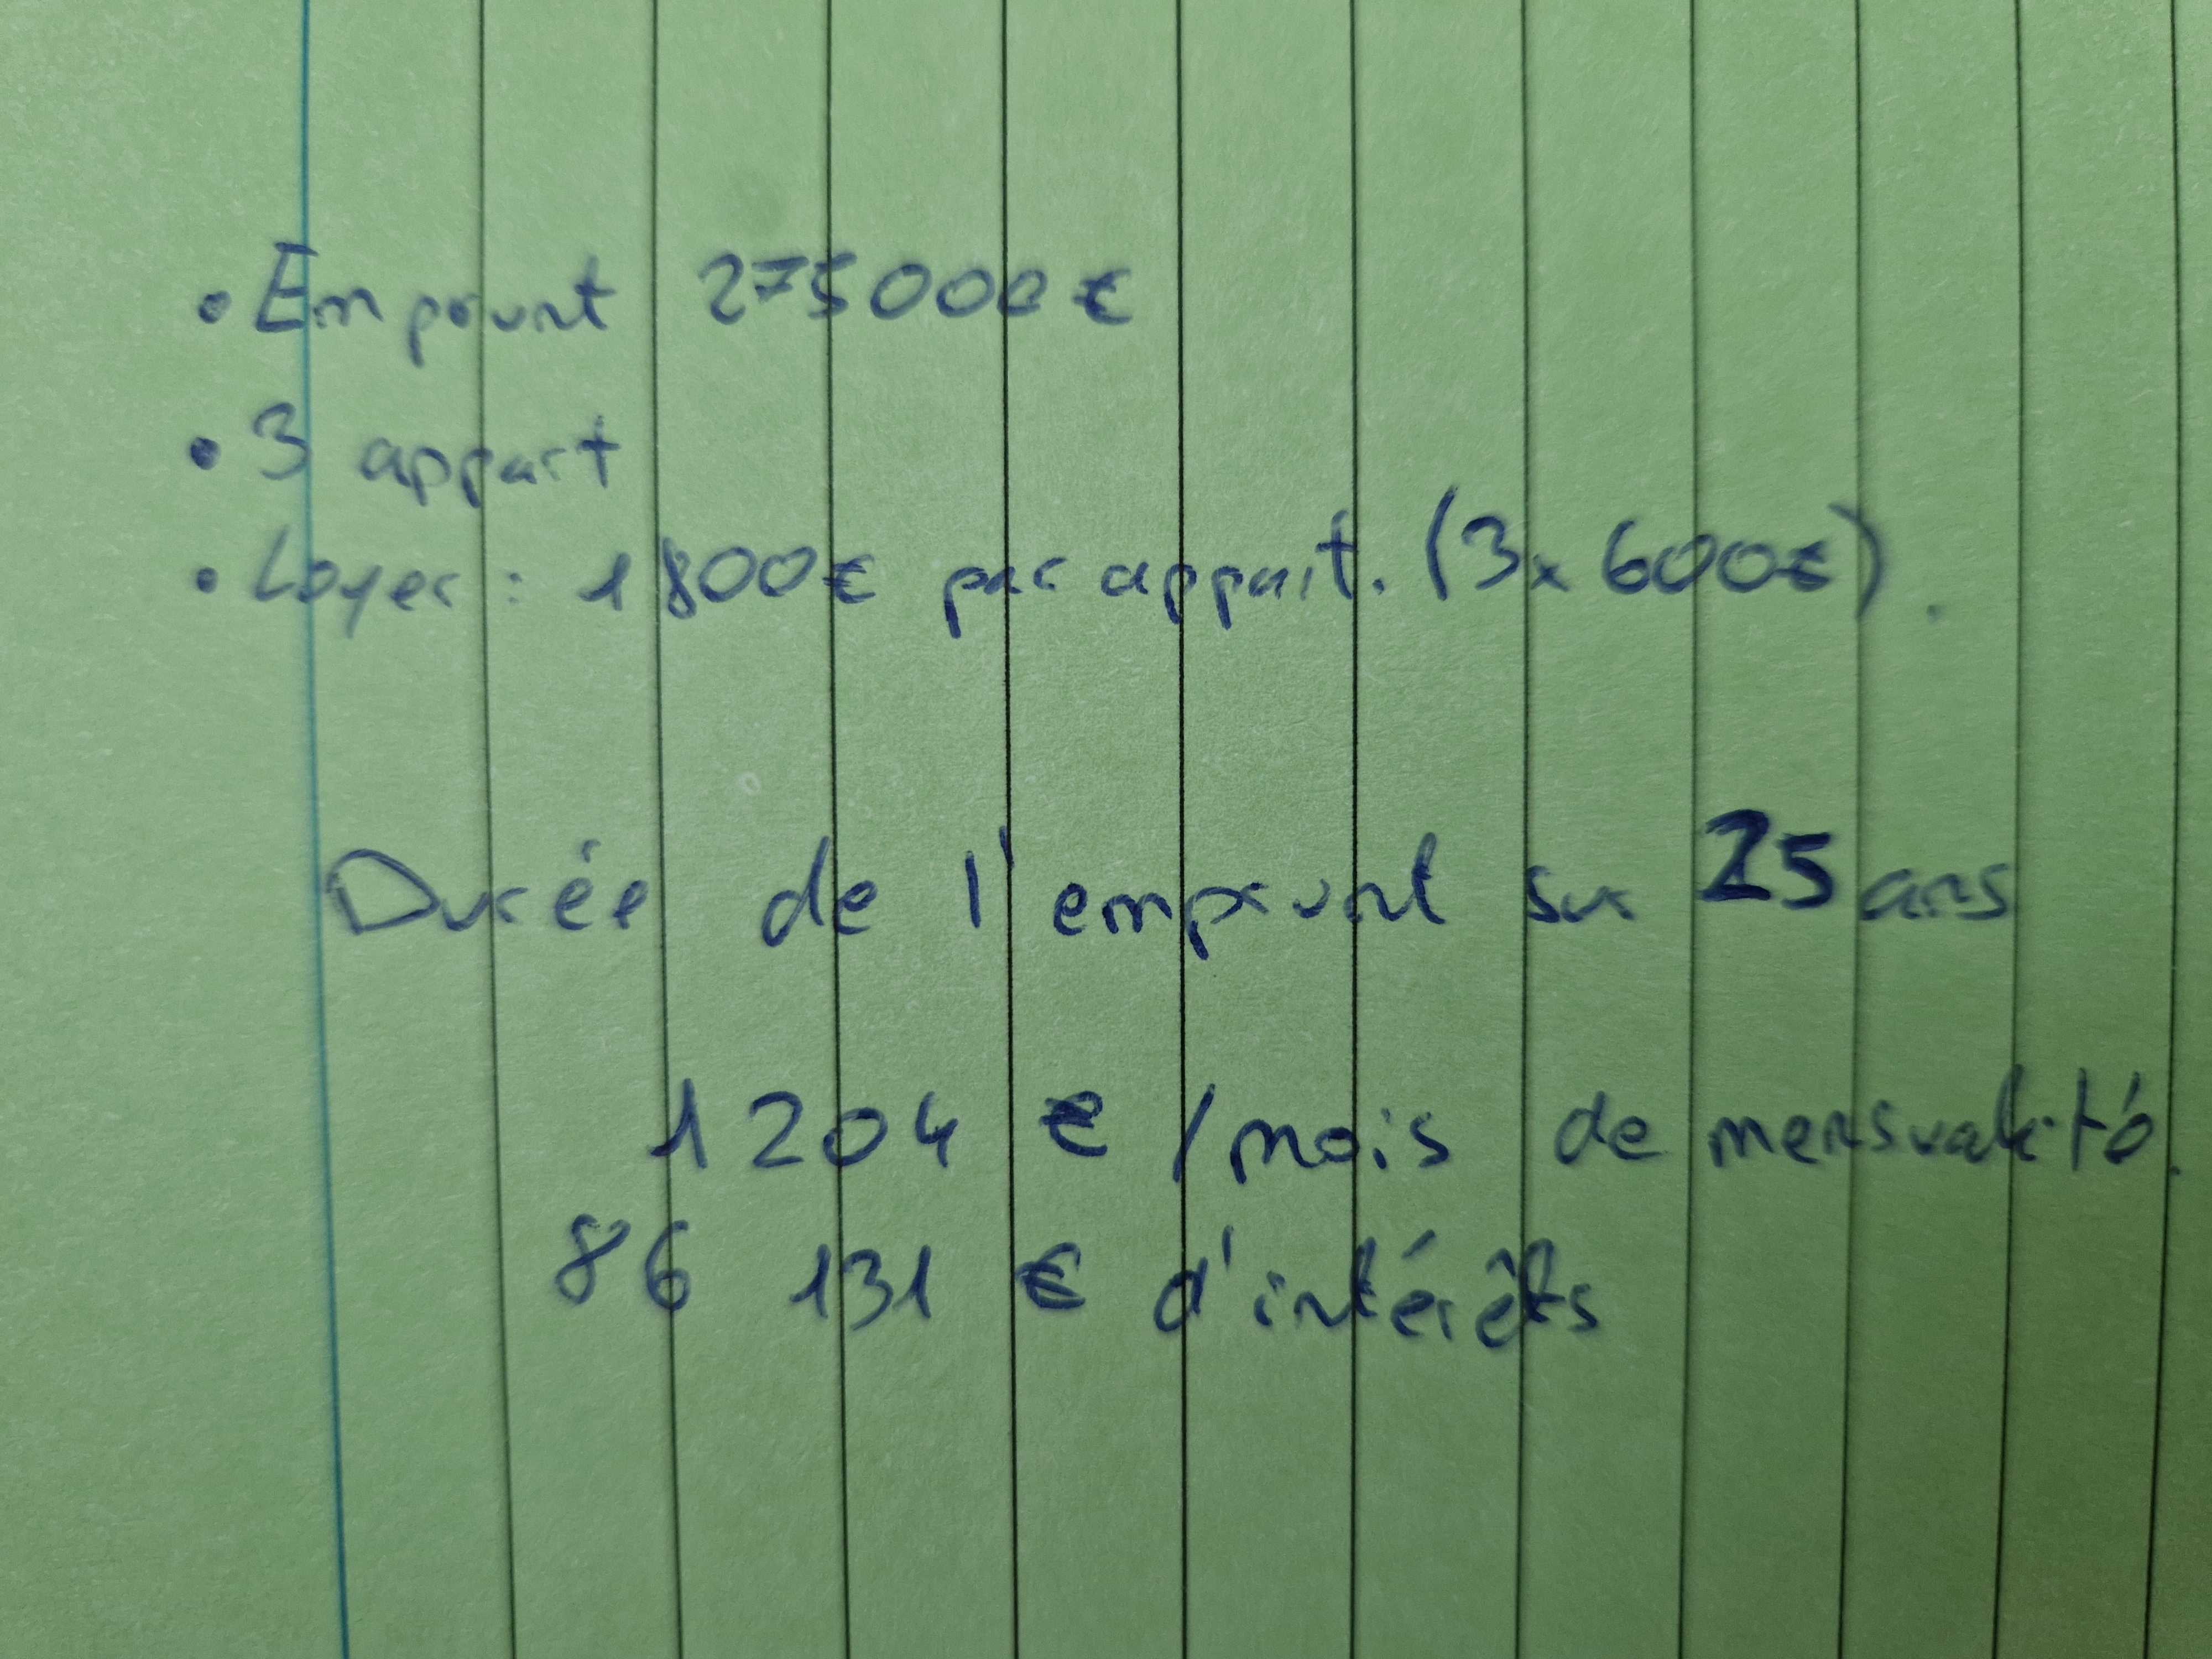 • Emprunt 275000€
• 3 appart
• Loyer : 1800€ par appart. (3x600€).
Durée de l'emprunt sur 25 ans
1204 € / mois de mensualité.
86 131 € d'intérêts